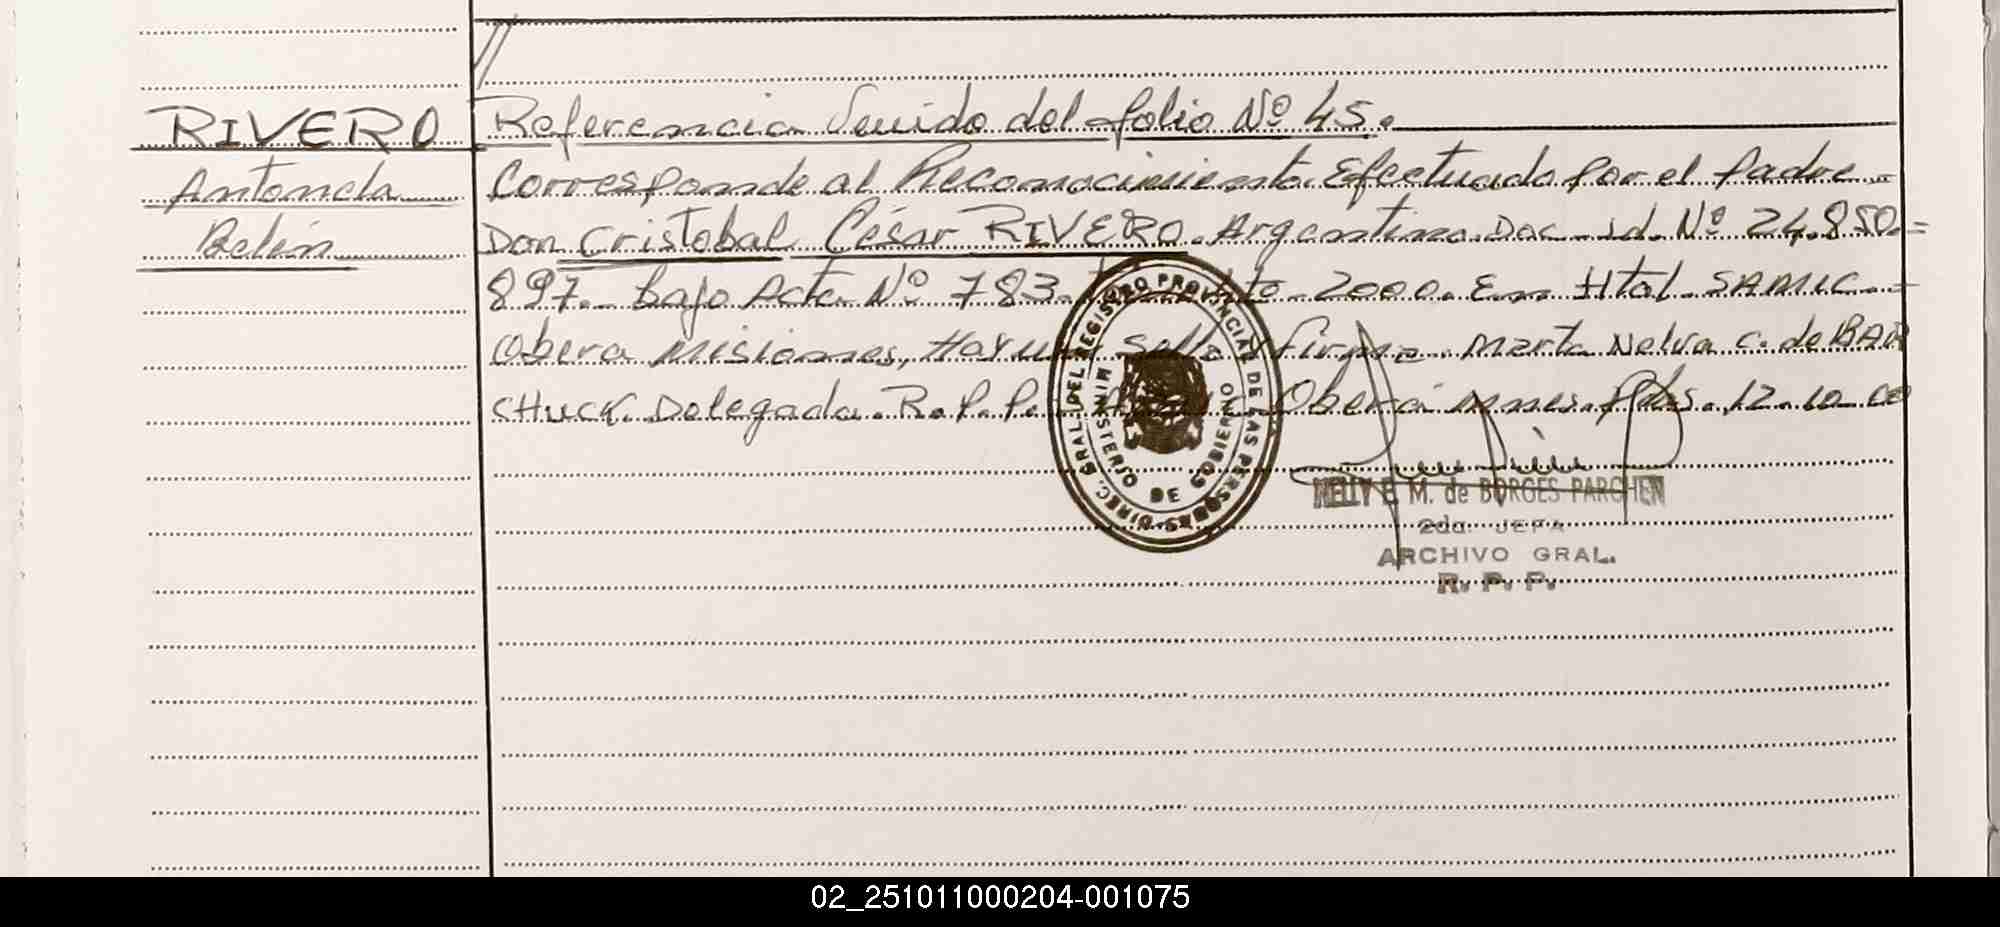 RIVERO Referencia Venido del folio Nº 45.
Antonela Corresponde al Reconocimiento Efectuado por el Padre
Belén Don Cristobal César RIVERO. Argentino. Doc. Id. Nº 24.850.=
897. Bajo Acta Nº 783. 2000. En Htal. SAMIC.-
Obera Misiones, Hay un Sello y firma. Marta Nelva C. de BAR
CHUCK. Delegada. R.P.P. Oberá Mnes. Pdas. 12.10.00
DIREC. GRAL. DEL REGISTRO PROVINCIAL DE LAS PERSONAS
MINISTERIO DE GOBIERNO
NELLY E. M. de BORGES PARCHEN
2da. JEFA
ARCHIVO GRAL.
R. P. P.
02_251011000204-001075